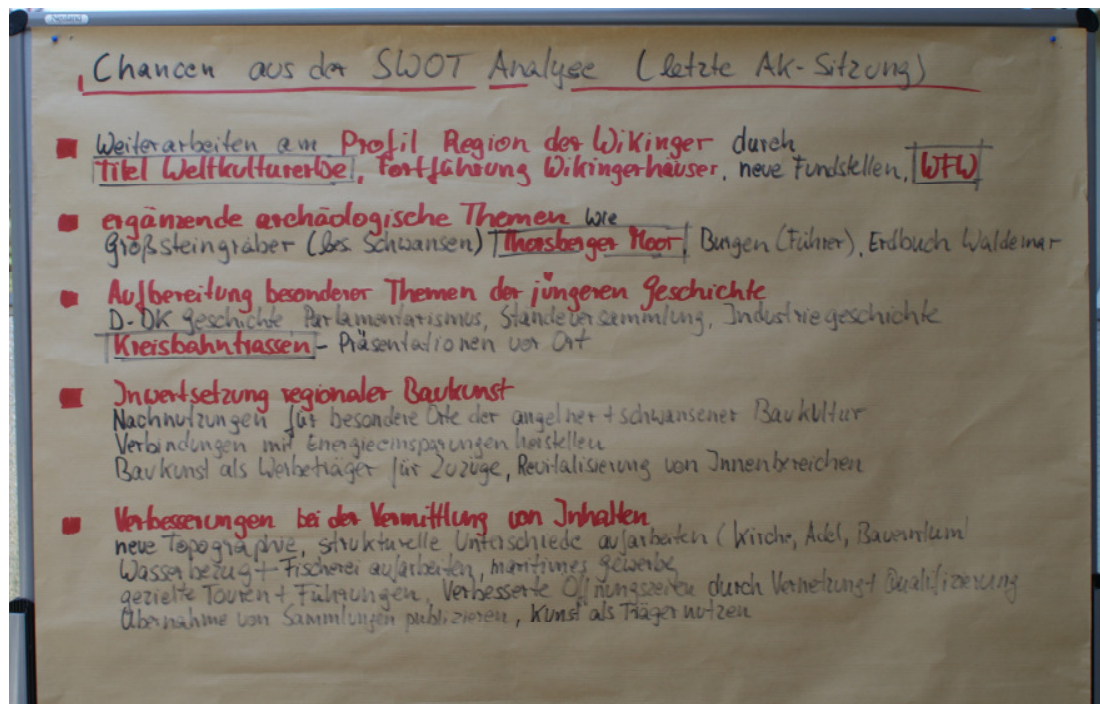 Neuland
Chancen aus der SWOT Analyse (letzte AK-Sitzung)
Weiterarbeiten am Profil Region der Wikinger durch
Titel Weltkulturerbe, Fortführung Wikingerhäuser, neue Fundstellen, WFW
ergänzende archäologische Themen wie
Großsteingräber (bes. Schwansen) Thorsberger Moor, Burgen (Führer), Erdbuch Waldemar
Aufbereitung besonderer Themen der jüngeren Geschichte
D-DK Geschichte Parlamentarismus, Ständeversammlung, Industriegeschichte
Kreisbahntrassen - Präsentationen vor Ort
Inwertsetzung regionaler Baukunst
Nachnutzungen für besondere Orte der angelner + schwansener Baukultur
Verbindungen mit Energieeinsparungen herstellen
Baukunst als Werbeträger für Zuzüge, Revitalisierung von Innenbereichen
Verbesserungen bei der Vermittlung von Inhalten
neue Topographie, strukturelle Unterschiede aufarbeiten (Kirche, Adel, Bauerntum)
Wasserbezug + Fischerei aufarbeiten, maritimes Gewerbe
gezielte Touren + Führungen, Verbesserte Öffnungszeiten durch Vernetzung + Qualifizierung
Übernahme von Sammlungen publizieren, Kunst als Träger nutzen